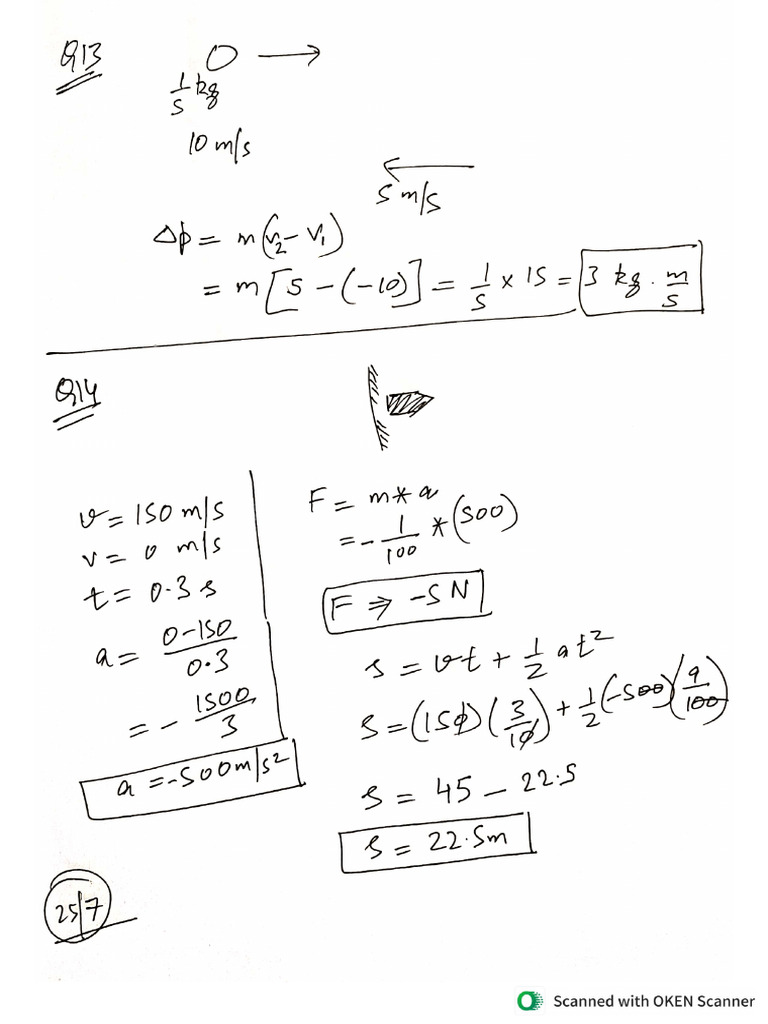 Q13
1/5 kg
10 m/s
5 m/s
Δp = m(v₂ - v₁)
= m[5 - (-10)] = 1/5 × 15 = 3 kg. m/s
Q14
v = 150 m/s
v = 0 m/s
t = 0.3 s
a = 0-150/0.3
= - 1500/3
a = -500 m/s²
F = m * a
= - 1/100 * (500)
F ⇒ -5 N
s = vt + 1/2 at²
s = (150)(3/10) + 1/2(-500)(9/100)
s = 45 - 22.5
s = 22.5m
25/7
Scanned with OKEN Scanner